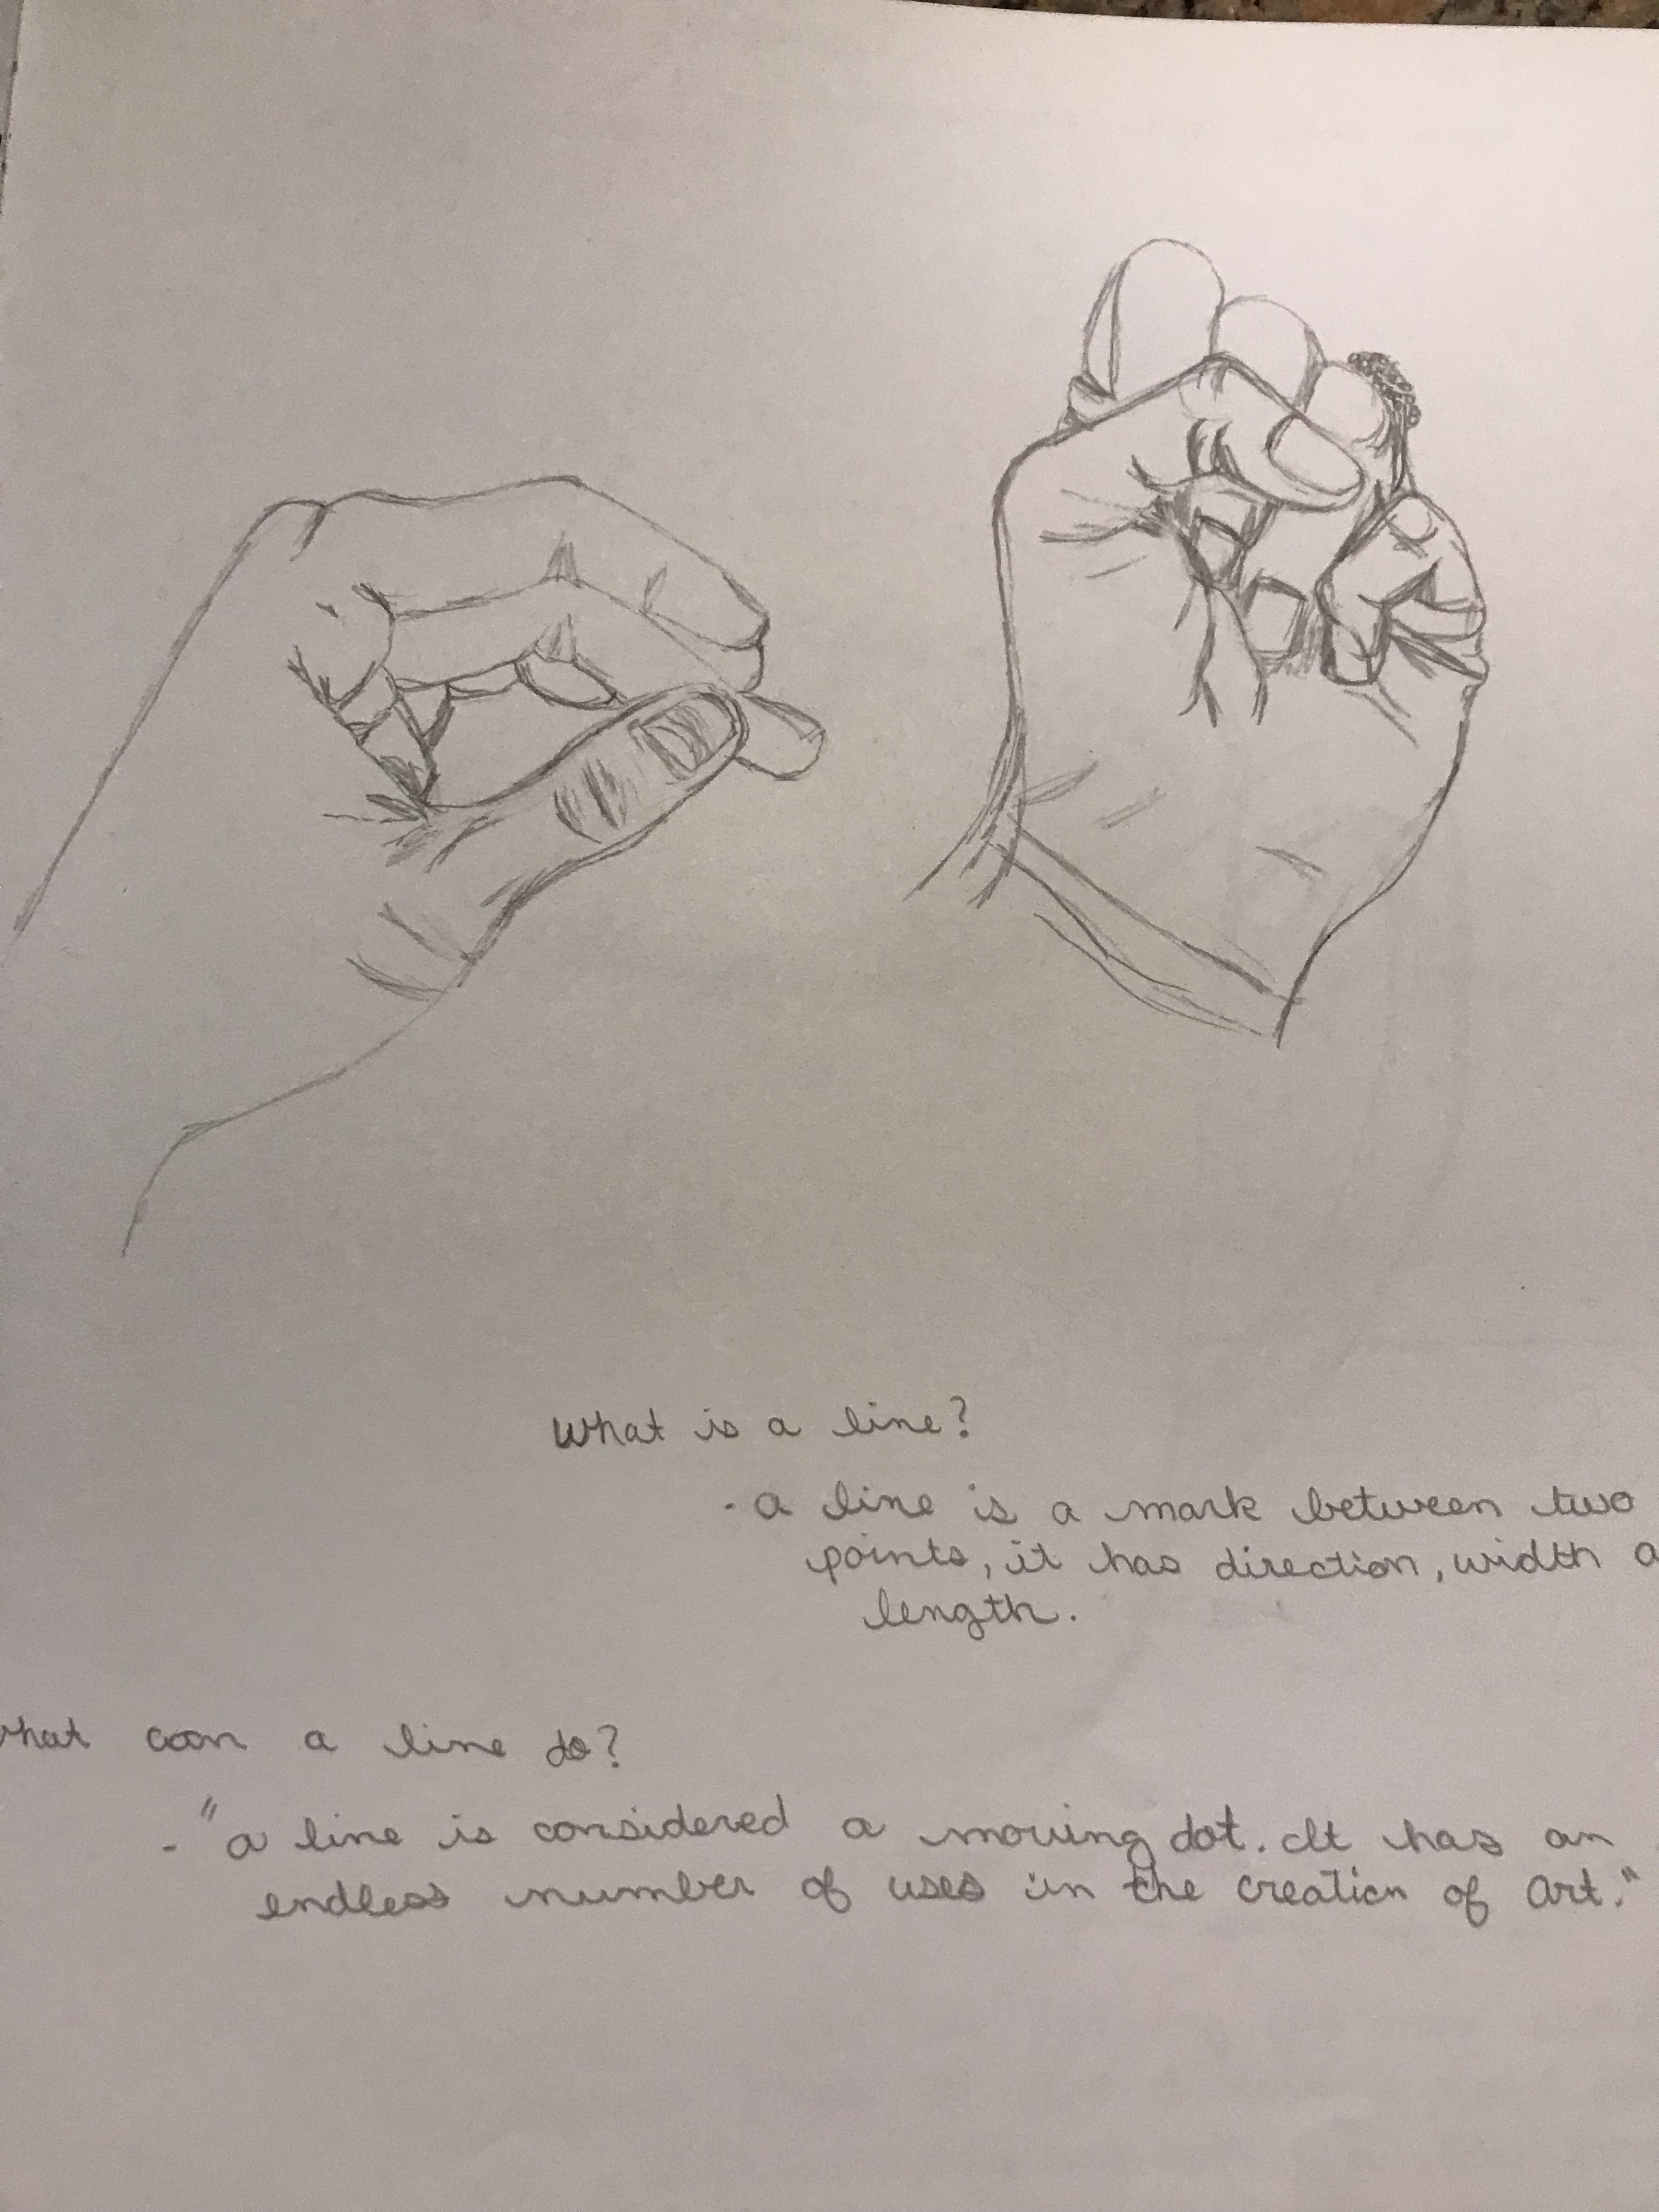 What is a line?
- a line is a mark between two
points, it has direction, width a
length.
what can a line do?
- "a line is considered a moving dot. It has an
endless number of uses in the creation of art."